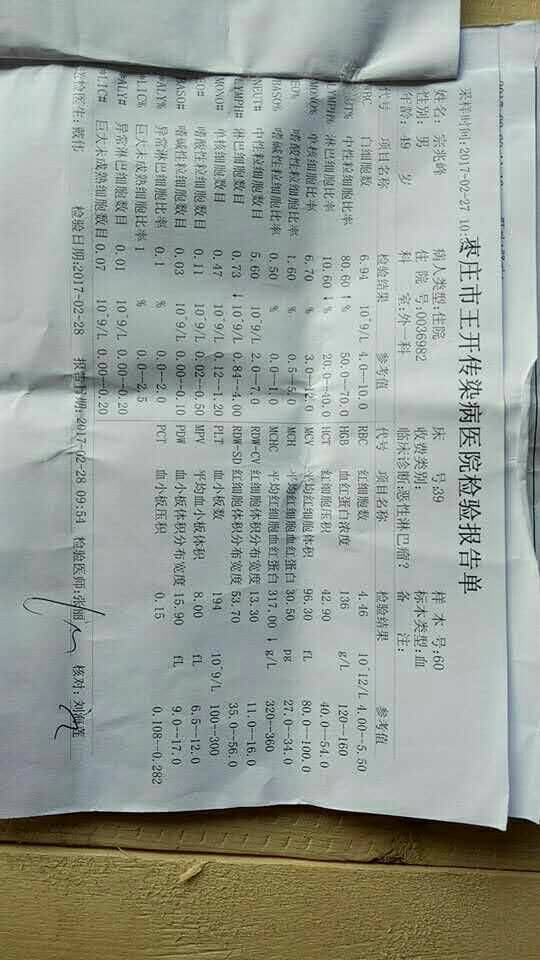 枣庄市王开传染病医院检验报告单
采样时间:2017-02-27 10:
姓名: 宗兆峰 病人类型:住院 床 号:39 样 本 号:60
性别: 男 住 院 号:0036982 收费类别: 标本类型:血
年龄: 49 岁 科 室:外 科 临床诊断:恶性淋巴瘤? 备 注:
代号 项目名称 检验结果 参考值 代号 项目名称 检验结果 参考值
WBC 白细胞数 6.94 10^9/L 4.0--10.0 RBC 红细胞数 4.46 10^12/L 4.00--5.50
NEUT% 中性粒细胞比率 80.60 ↑ % 50.0--70.0 HGB 血红蛋白浓度 136 g/L 120--160
LYMPH% 淋巴细胞比率 10.60 ↓ % 20.0--40.0 HCT 红细胞压积 42.90 40.0--54.0
MONO% 单核细胞比率 6.70 % 3.0--12.0 MCV 平均红细胞体积 96.30 fL 80.0--100.0
EO% 嗜酸性粒细胞比率 1.60 % 0.5--5.0 MCH 平均红细胞血红蛋白 30.50 pg 27.0--34.0
BASO% 嗜碱性粒细胞比率 0.50 % 0.0--1.0 MCHC 平均红细胞血红蛋白 317.00 ↓ g/L 320--360
NEUT# 中性粒细胞数目 5.60 10^9/L 2.0--7.0 RDW-CV 红细胞体积分布宽度 13.30 11.0--16.0
LYMPH# 淋巴细胞数目 0.73 ↓ 10^9/L 0.84--4.00 RDW-SD 红细胞体积分布宽度 53.70 35.0--56.0
MONO# 单核细胞数目 0.47 10^9/L 0.12--1.20 PLT 血小板数 194 10^9/L 100--300
EO# 嗜酸性粒细胞数目 0.11 10^9/L 0.02--0.50 MPV 平均血小板体积 8.00 fL 6.5--12.0
BASO# 嗜碱性粒细胞数目 0.03 10^9/L 0.00--0.10 PDW 血小板体积分布宽度 15.90 fL 9.0--17.0
*ALY% 异常淋巴细胞比率 0.1 % 0.0--2.0 PCT 血小板压积 0.15 0.108--0.282
*LIC% 巨大未成熟细胞比率 1 % 0.0--2.5
*ALY# 异常淋巴细胞数目 0.01 10^9/L 0.00--0.20
*LIC# 巨大未成熟细胞数目 0.07 10^9/L 0.00--0.20
送检医生: 戴伟 检验日期:2017-02-28 报告日期:2017-02-28 09:54 检验医师:张丽 核对: